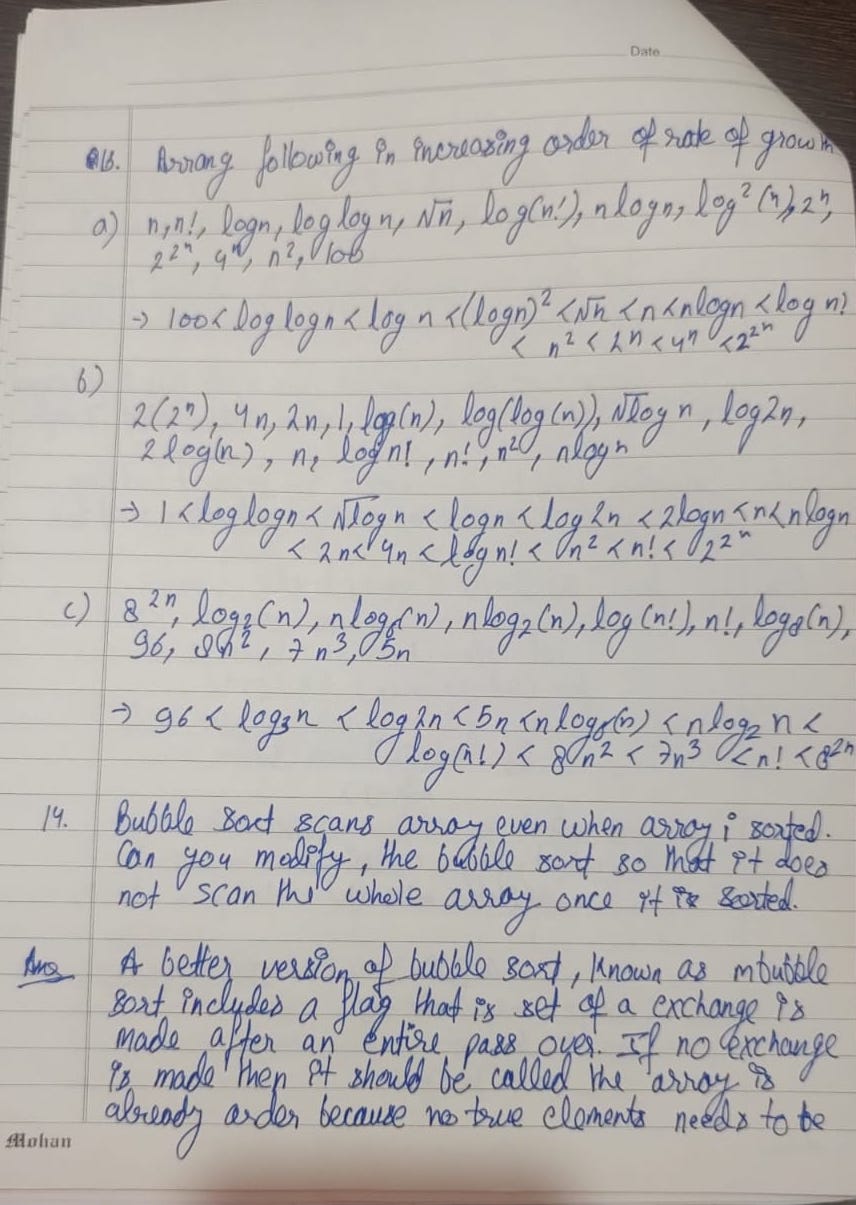 Date
Q13. Arrang following in increasing order of rate of growth
a) n, n!, logn, log logn, √n, log(n!), nlogn, log²(n), 2ⁿ,
2^2ⁿ, 4ⁿ, n², 100
→ 100 < log logn < log n < (logn)² < √n < n < nlogn < log n!
< n² < 2ⁿ < 4ⁿ < 2^2ⁿ
b)
2(2ⁿ), 4n, 2n, 1, log(n), log(log(n)), √logn, log2n,
2log(n), n, logn!, n!, n², nlogn
→ 1 < loglogn < √logn < logn < log2n < 2logn < n < nlogn
< 2n < 4n < logn! < n² < n! < 2^2ⁿ
c) 8^2n, log₂(n), nlog₆(n), nlog₂(n), log(n!), n!, log₈(n),
96, 8n², 7n³, 5n
→ 96 < log₈n < log2n < 5n < nlog₆(n) < nlog₂n <
log(n!) < 8n² < 7n³ < n! < 8^2n
14. Bubble sort scans array even when array i sorted.
Can you modify, the bubble sort so that it does
not scan the whole array once it is sorted.
Ans A better version of bubble sort, known as mbubble
sort includes a flag that is set of a exchange is
made after an entire pass over. If no exchange
is made then it should be called the array is
already order because no true elements needs to be
Mohan